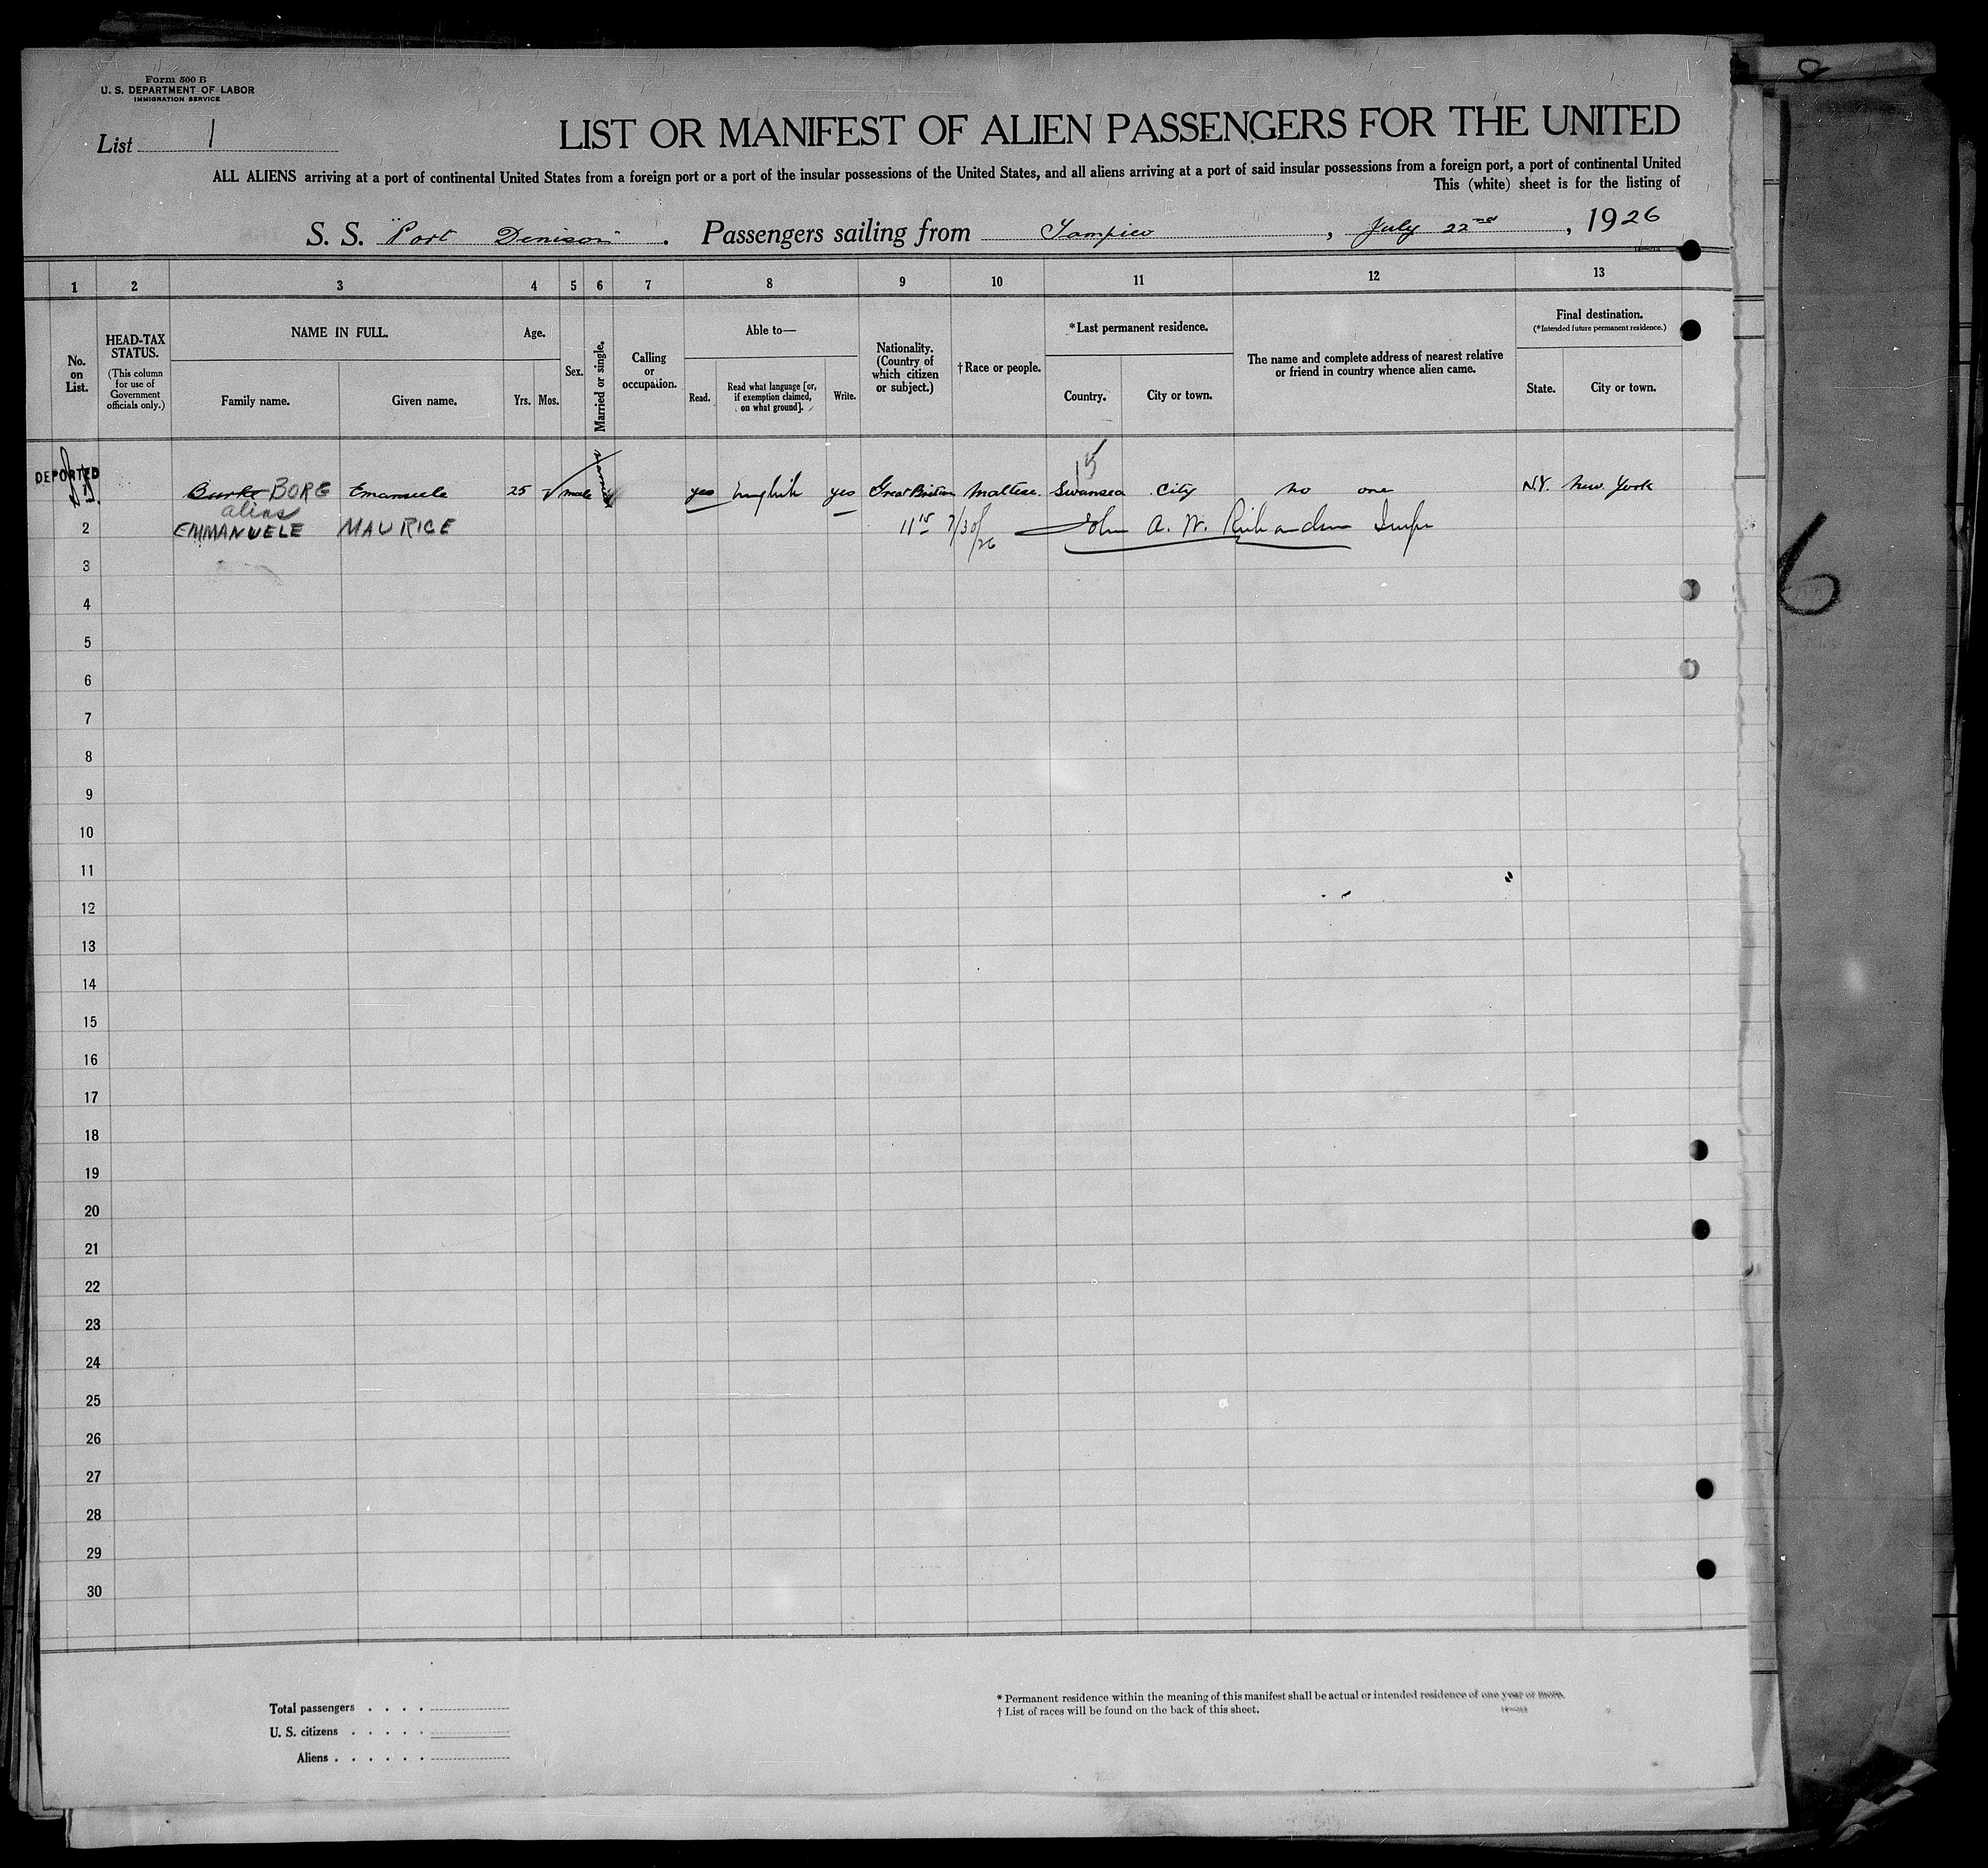 8
Form 500 B
U. S. DEPARTMENT OF LABOR
IMMIGRATION SERVICE
List 1
LIST OR MANIFEST OF ALIEN PASSENGERS FOR THE UNITED
ALL ALIENS arriving at a port of continental United States from a foreign port or a port of the insular possessions of the United States, and all aliens arriving at a port of said insular possessions from a foreign port, a port of continental United
This (white) sheet is for the listing of
S. S. "Port Denison". Passengers sailing from Tampico, July 22nd, 1926
1 2 3 4 5 6 7 8 9 10 11 12 13
No. on List.
HEAD-TAX STATUS.
(This column for use of Government officials only.)
NAME IN FULL.
Family name. Given name.
Age.
Yrs. Mos.
Sex.
Married or single.
Calling or occupation.
Able to—
Read. Read what language [or, if exemption claimed, on what ground]. Write.
Nationality. (Country of which citizen or subject.)
†Race or people.
*Last permanent residence.
Country. City or town.
The name and complete address of nearest relative or friend in country whence alien came.
Final destination.
(*Intended future permanent residence.)
State. City or town.
DEPORTED
15
1 Burke BORG Emanuele 25 male yes English yes Great Britain Maltese. Swansea City no one N.Y. New York
alias
2 EMMANUELE MAURICE 11 15 7/30/26 John A. W. Richardson Inspr
3
4
5
6
6
7
8
9
10
11
12
13
14
15
16
17
18
19
20
21
22
23
24
25
26
27
28
29
30
Total passengers . . . .
U. S. citizens . . . . .
Aliens . . . . . .
* Permanent residence within the meaning of this manifest shall be actual or intended residence of one year or more.
† List of races will be found on the back of this sheet.